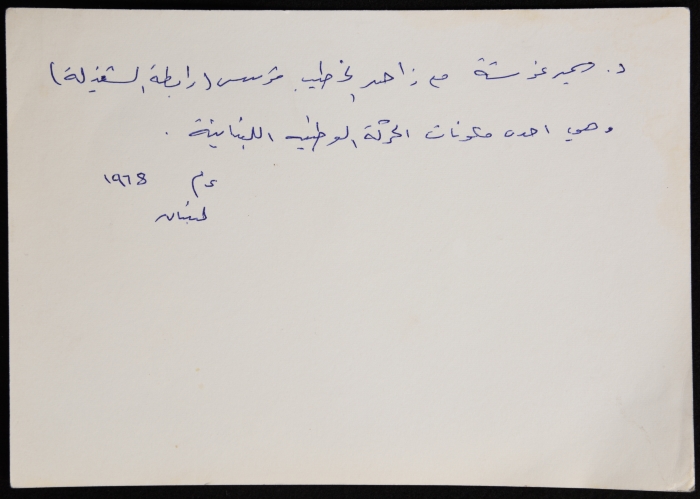 د. صبحي غوشة مع زاهر الخطيب مؤسس (رابطة الشغيلة)
وهي احدى مكونات الحركة الوطنيه اللبنانية .
عام 1968
لبنان